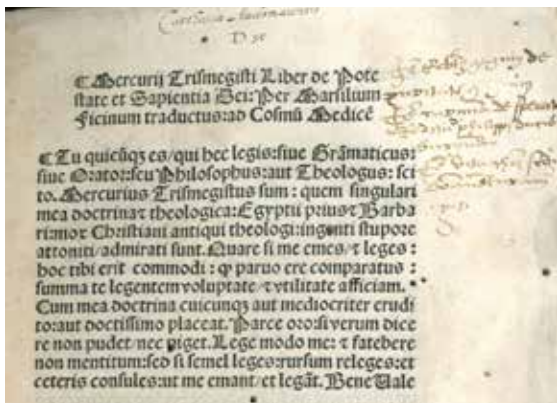 ¶ Mercurij Trismegisti Liber de Pote
state et Sapientia Dei: Per Marsilium
Ficinum traductus: ad Cosmũ Medicẽ
¶ Tu quicũqꝫ es/qui hec legis: siue Grãmaticus:
siue Orator: seu Philosophus: aut Theologus: sci
to. Mercurius Trismegistus sum: quem singulari
mea doctrina ⁊ theologica: Egyptij prius ⁊ Barba
ri: mox Christiani antiqui theologi: ingenti stupore
attoniti/admirati sunt. Quare si me emes/⁊ leges:
hoc tibi erit commodi: ꝙ paruo ere comparatus:
summa te legentem voluptate/⁊ vtilitate afficiam.
Cum mea doctrina cuicunqꝫ aut mediocriter erudi
to: aut doctissimo placeat. Parce oro: si verum dice
re non pudet/nec piget. Lege modo me: ⁊ fatebere
non mentitum: sed si semel leges: rursum releges: et
ceteris consules: ut me emant/et legãt. Bene Uale